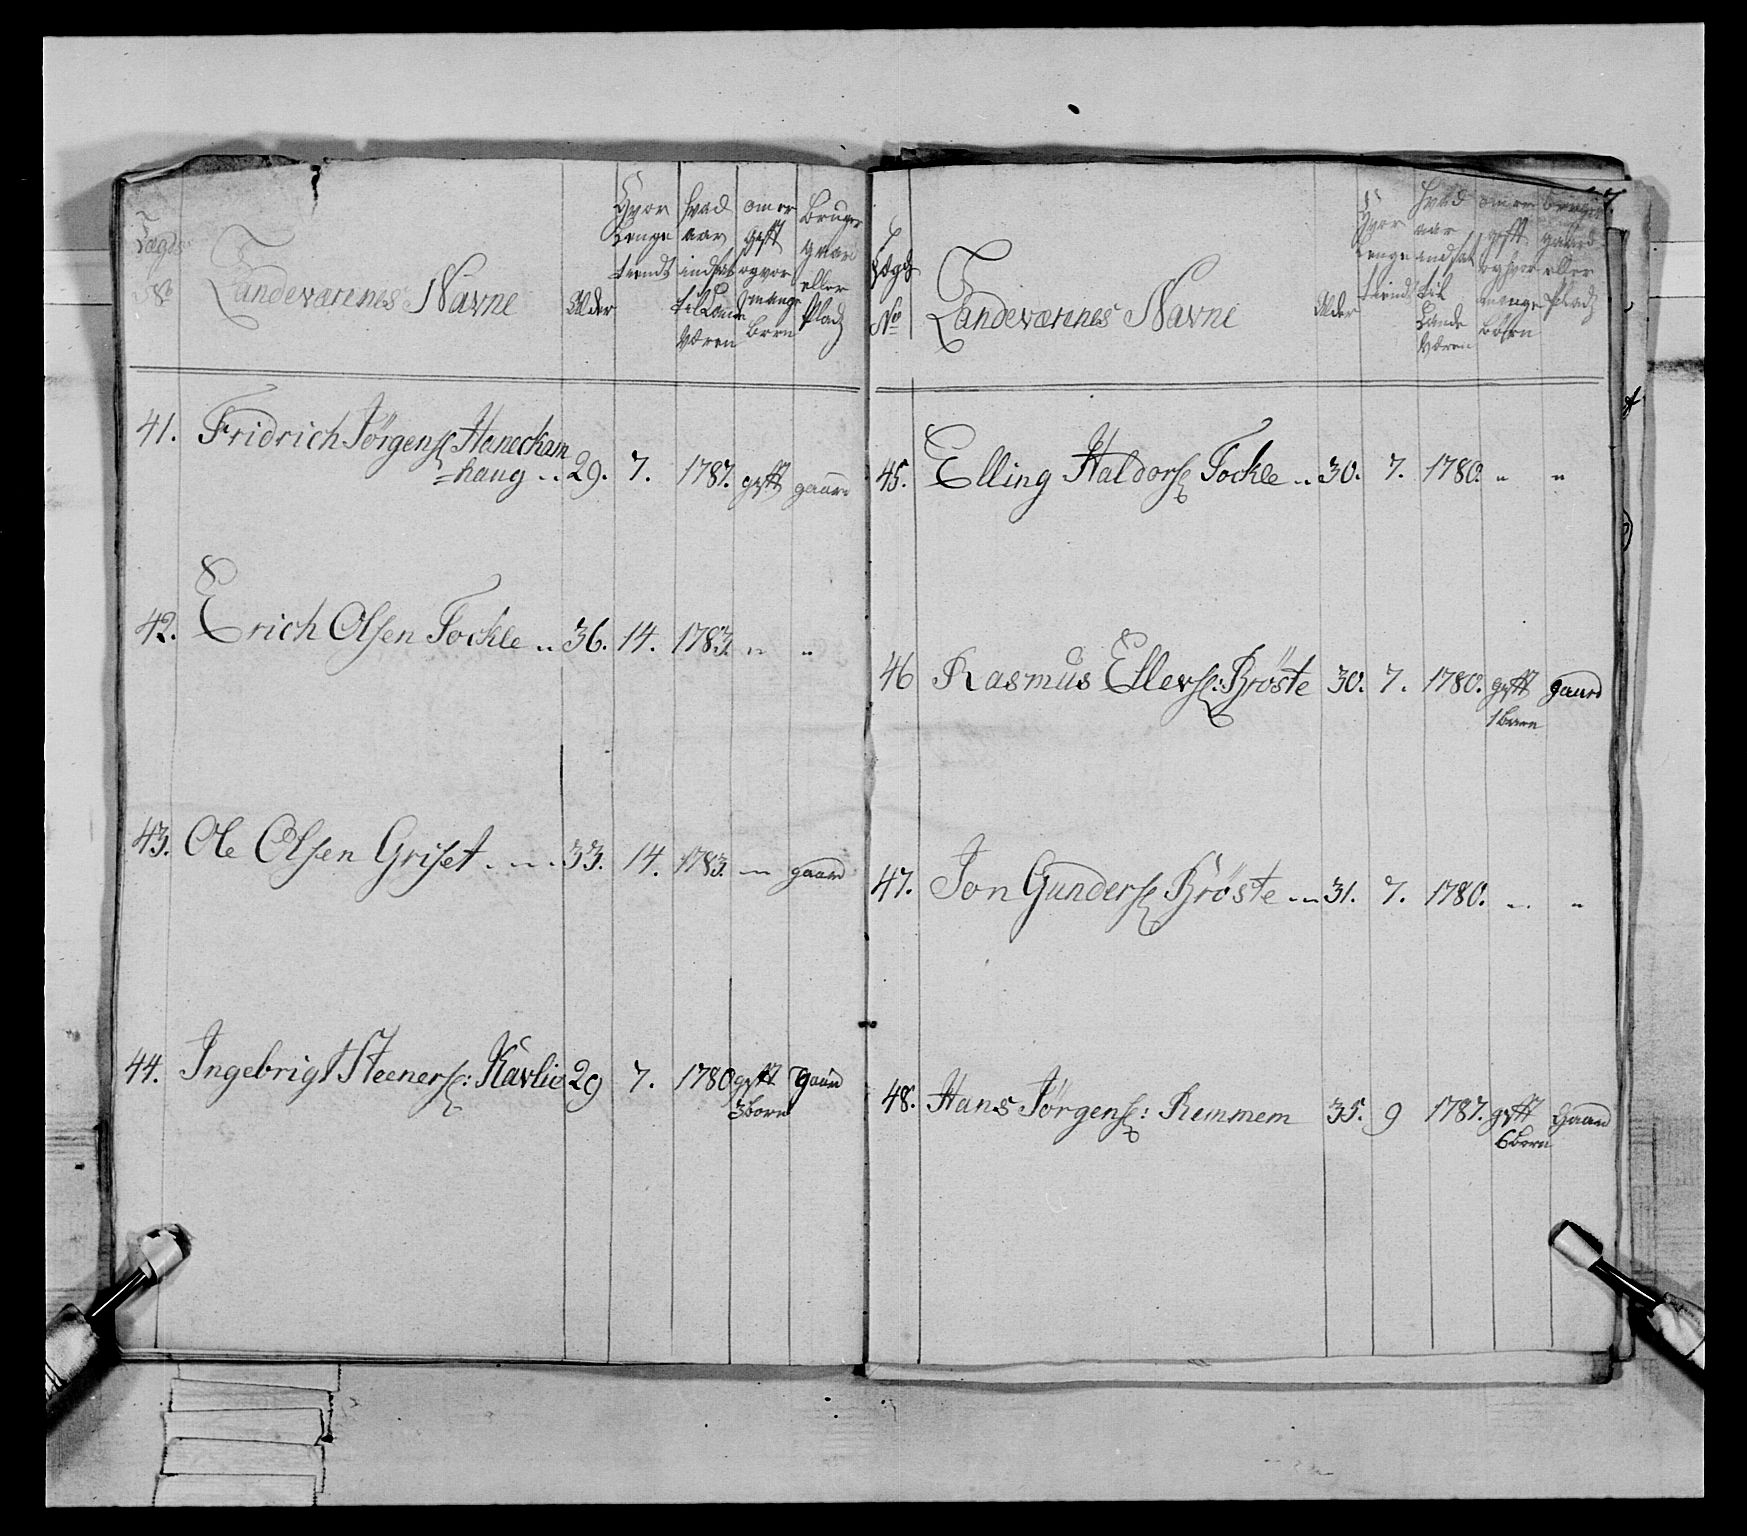 Lægds
No
Landeværenes Navne
Alder
Hvor
Lenge
tiendt
hvad
aar
indsat
til Lande
Væren
om er
gift
og hvor
mange
børn
bruger
gaard
eller
Pladz
41. Fridrich Jörgens Haneckam
=haug .. 29. 7. 1787. gift gaard
42. Erich Olsen Tockle .. 36. 14. 1783. " "
43. Ole Olsen Griset .... 33. 14. 1783. " gaard
44. Ingebrigt Steeners: Kavlie 29 7. 1780 gift gaard
3 born
Lægds
No
Landeværenes Navne
Alder
Hvor
Lenge
tiendt
hvad
aar
indsat
til
Lande
Væren
om er
gift
og hvor
mange
børn
bruger
gaard
eller
Pladz
45. Elling Haldors Tockle .. 30. 7. 1780. " "
46 Rasmus Ellevs: Bröste 30. 7. 1780. gift gaard
1 barn
47. Jon Gunders Bröste ... 31. 7. 1780. " "
48. Hans Jörgens: Remmem 35. 9 1787. gift Gaard
6 born